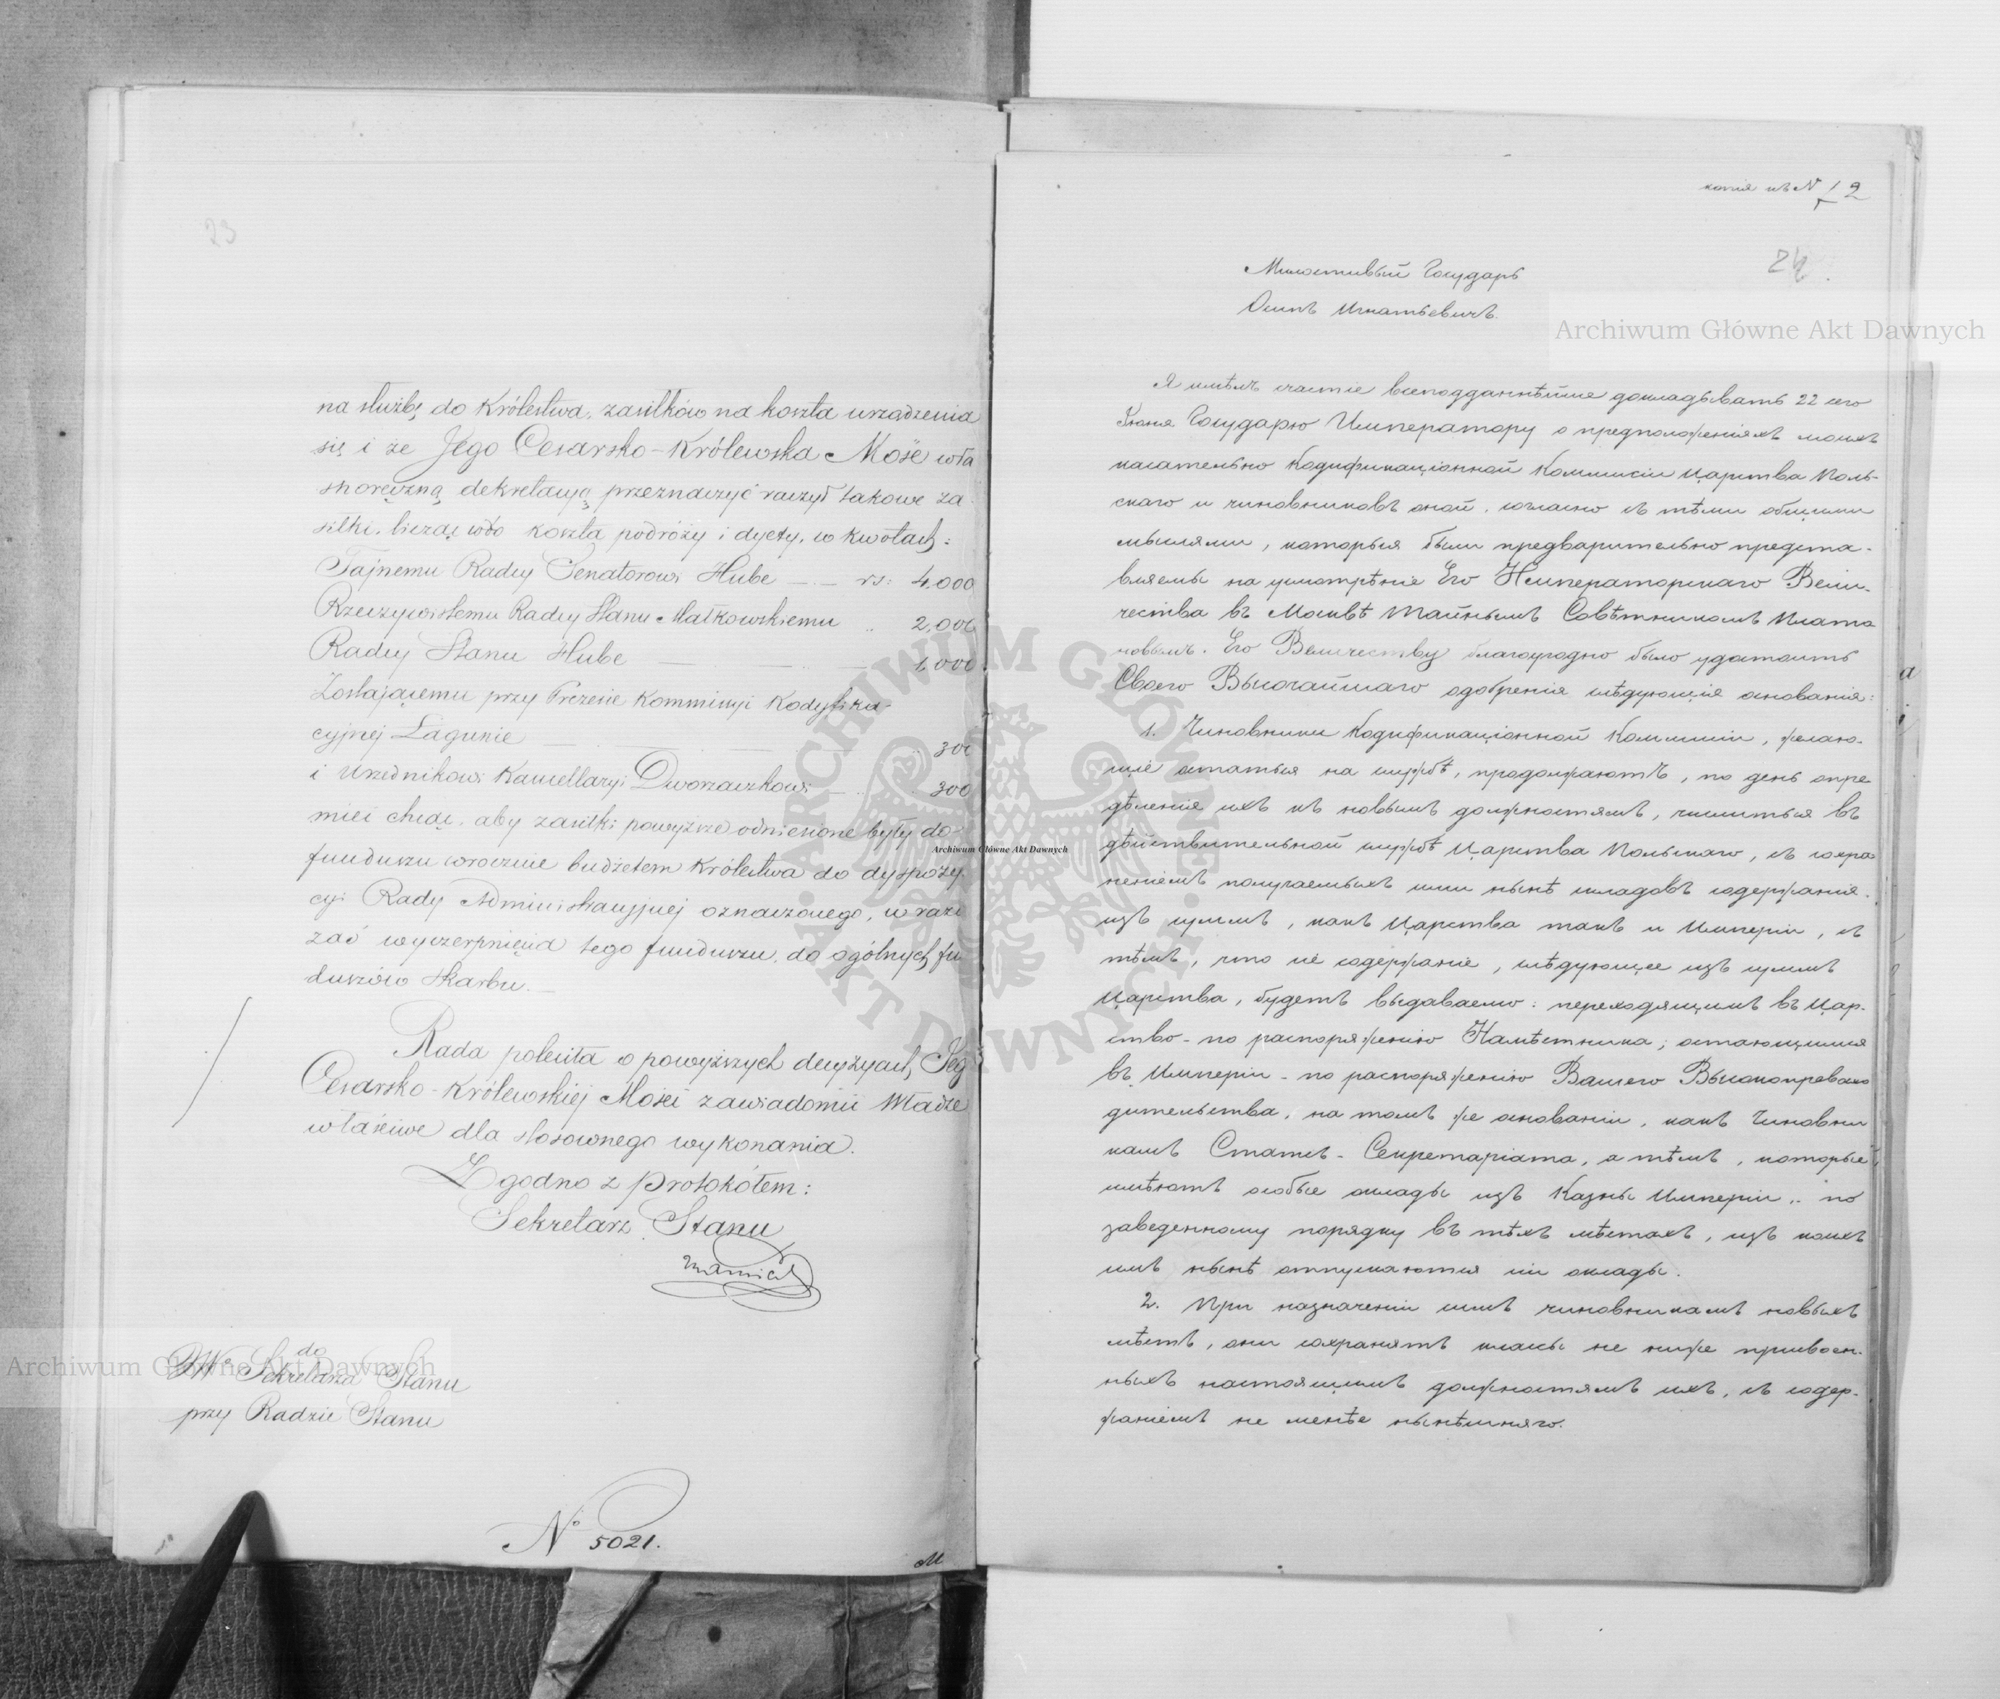 23
na służbę do Królestwa, zasiłków na koszta urządzenia
się i że Jego Cesarsko-Królewska Mość wła
snoręczną dekretacyą przeznaczyć raczył takowe za-
siłki, licząc w to koszta podróży i dyety, w kwotach:
Tajnemu Radcy Senatorowi Hube — rs: 4,000
Rzeczywistemu Radcy Stanu Małkowskiemu „ 2,000
Radcy Stanu Hube — 1,000
Zostającemu przy Prezesie Kommissyi Kodyfika-
cyjnej Łagunie — 300
i Urzędnikowi Kancellaryi Dworzaczkowi — 300
mieć chcąc, aby zasiłki powyższe odniesione były do
funduszu corocznie budżetem Królestwa do dyspozy-
cyi Rady Administracyjnej oznaczonego, w razie
zaś wyczerpnięcia tego funduszu, do ogólnych fun
duszów Skarbu.—
Rada poleciła o powyższych decyzyach Jego
Cesarsko-Królewskiej Mości zawiadomić Władze
właściwe dla stosownego wykonania.
Zgodno z Protokółem:
Sekretarz Stanu
do
JW° Sekretarza Stanu
przy Radzie Stanu
N° 5021.
M
копія къ N 12
24.
Милостивый Государь
Осипъ Игнатьевичъ.
Я имѣлъ счастіе всеподданнѣйше докладывать 22 сего
Іюня Государю Императору о предположеніяхъ моихъ
касательно Кодификаціонной Коммисіи Царства Поль-
скаго и чиновниковъ оной, согласно съ тѣми общими
мыслями, которыя были предварительно предста-
вляемы на усмотрѣніе Его Императорскаго Вели-
чества въ Москвѣ Тайнымъ Совѣтникомъ Плато
новымъ. Его Величеству благоугодно было удостоить
Своего Высочайшаго одобренія слѣдующія основанія:
1. Чиновники Кодификаціонной Коммисіи, желаю-
щіе остаться на службѣ, продолжаютъ, по день опре
дѣленія ихъ къ новымъ должностямъ, числиться въ
дѣйствительной службѣ Царства Польскаго, съ сохра
неніемъ получаемыхъ ими нынѣ окладовъ содержанія
изъ суммъ, какъ Царства такъ и Имперіи, съ
тѣмъ, что все содержаніе, слѣдующее изъ суммъ
Царства, будетъ выдаваемо: переходящимъ въ Цар-
ство - по распоряженію Намѣстника; остающимся
въ Имперіи - по распоряженію Вашего Высокопревосхо
дительства, на томъ же основаніи, какъ Чиновни
камъ Статсъ-Секретаріата, а тѣмъ, которые
имѣютъ особые оклады изъ Казны Имперіи, по
заведенному порядку въ тѣхъ мѣстахъ, изъ коихъ
имъ нынѣ отпускаются сіи оклады.
2. При назначеніи симъ чиновникамъ новыхъ
мѣстъ, они сохранятъ классы не ниже присвоен-
ныхъ настоящимъ должностямъ ихъ, съ содер-
жаніемъ не менѣе нынѣшняго.
Archiwum Główne Akt Dawnych
Archiwum Główne Akt Dawnych
Archiwum Główne Akt Dawnych
ARCHIWUM GŁÓWNE AKT DAWNYCH